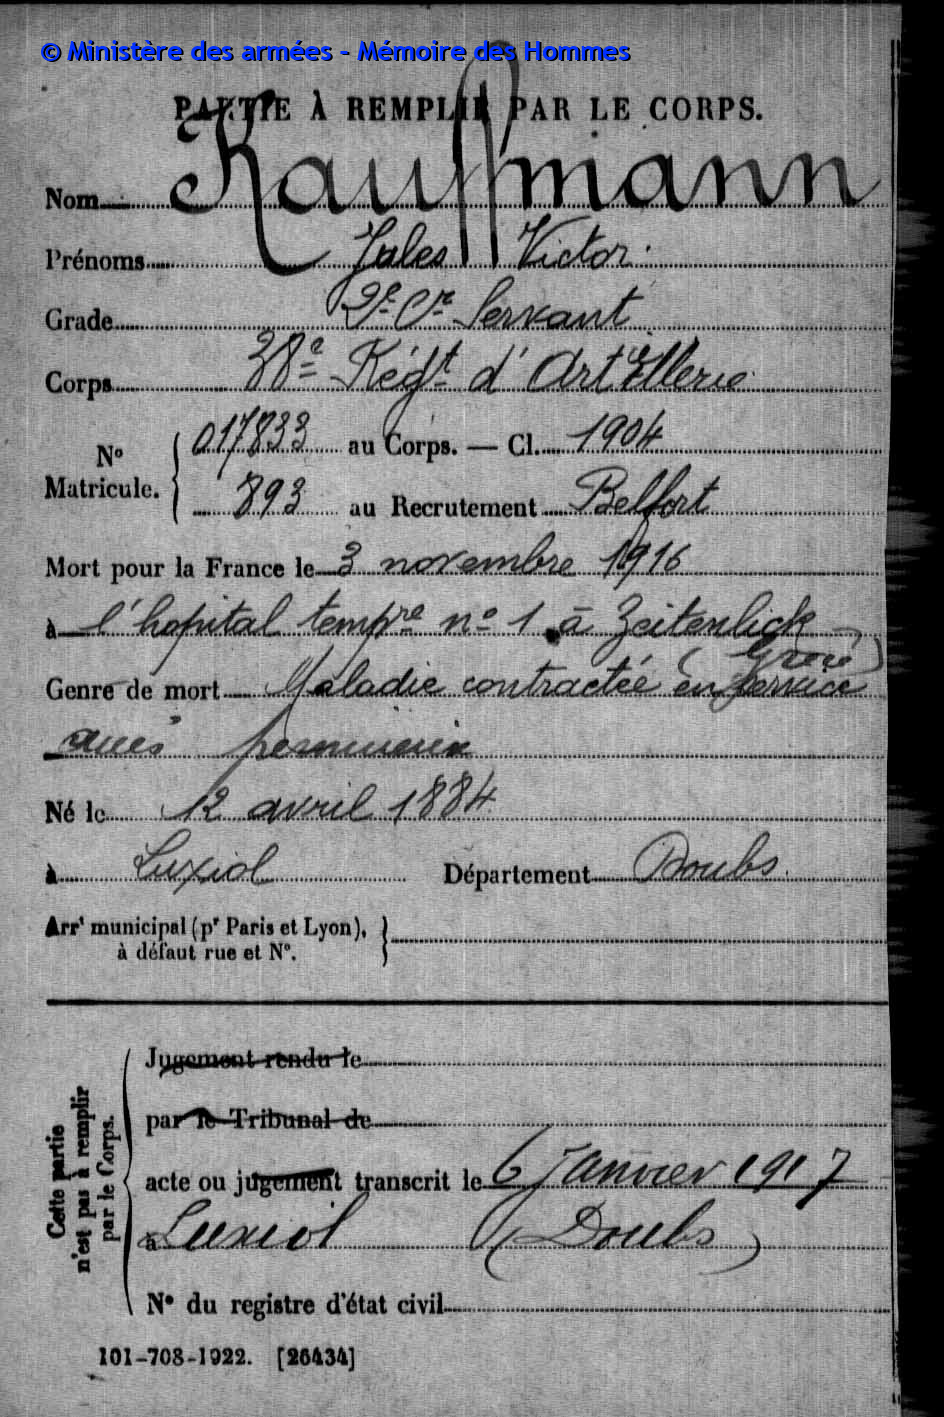 © Ministère des armées - Mémoire des Hommes
PARTIE À REMPLIR PAR LE CORPS.
Nom Kauffmann
Prénoms Jules Victor
Grade 2e Cr Servant
Corps 38e Régt d'Artillerie
No Matricule. 017833 au Corps. — Cl. 1904
893 au Recrutement Belfort
Mort pour la France le 3 novembre 1916
à l'hopital tempre no 1 à Zeitenlick
(Grèce)
Genre de mort Maladie contractée en service
accès pernicieux
Né le 12 avril 1884
à Luxiol Département Doubs
Arrt municipal (pr Paris et Lyon),
à défaut rue et No.
Cette partie
n'est pas à remplir
par le Corps.
Jugement rendu le
par le Tribunal de
acte ou jugement transcrit le 6 Janvier 1917
à Luxiol (Doubs)
No du registre d'état civil
101-708-1922. [26434]